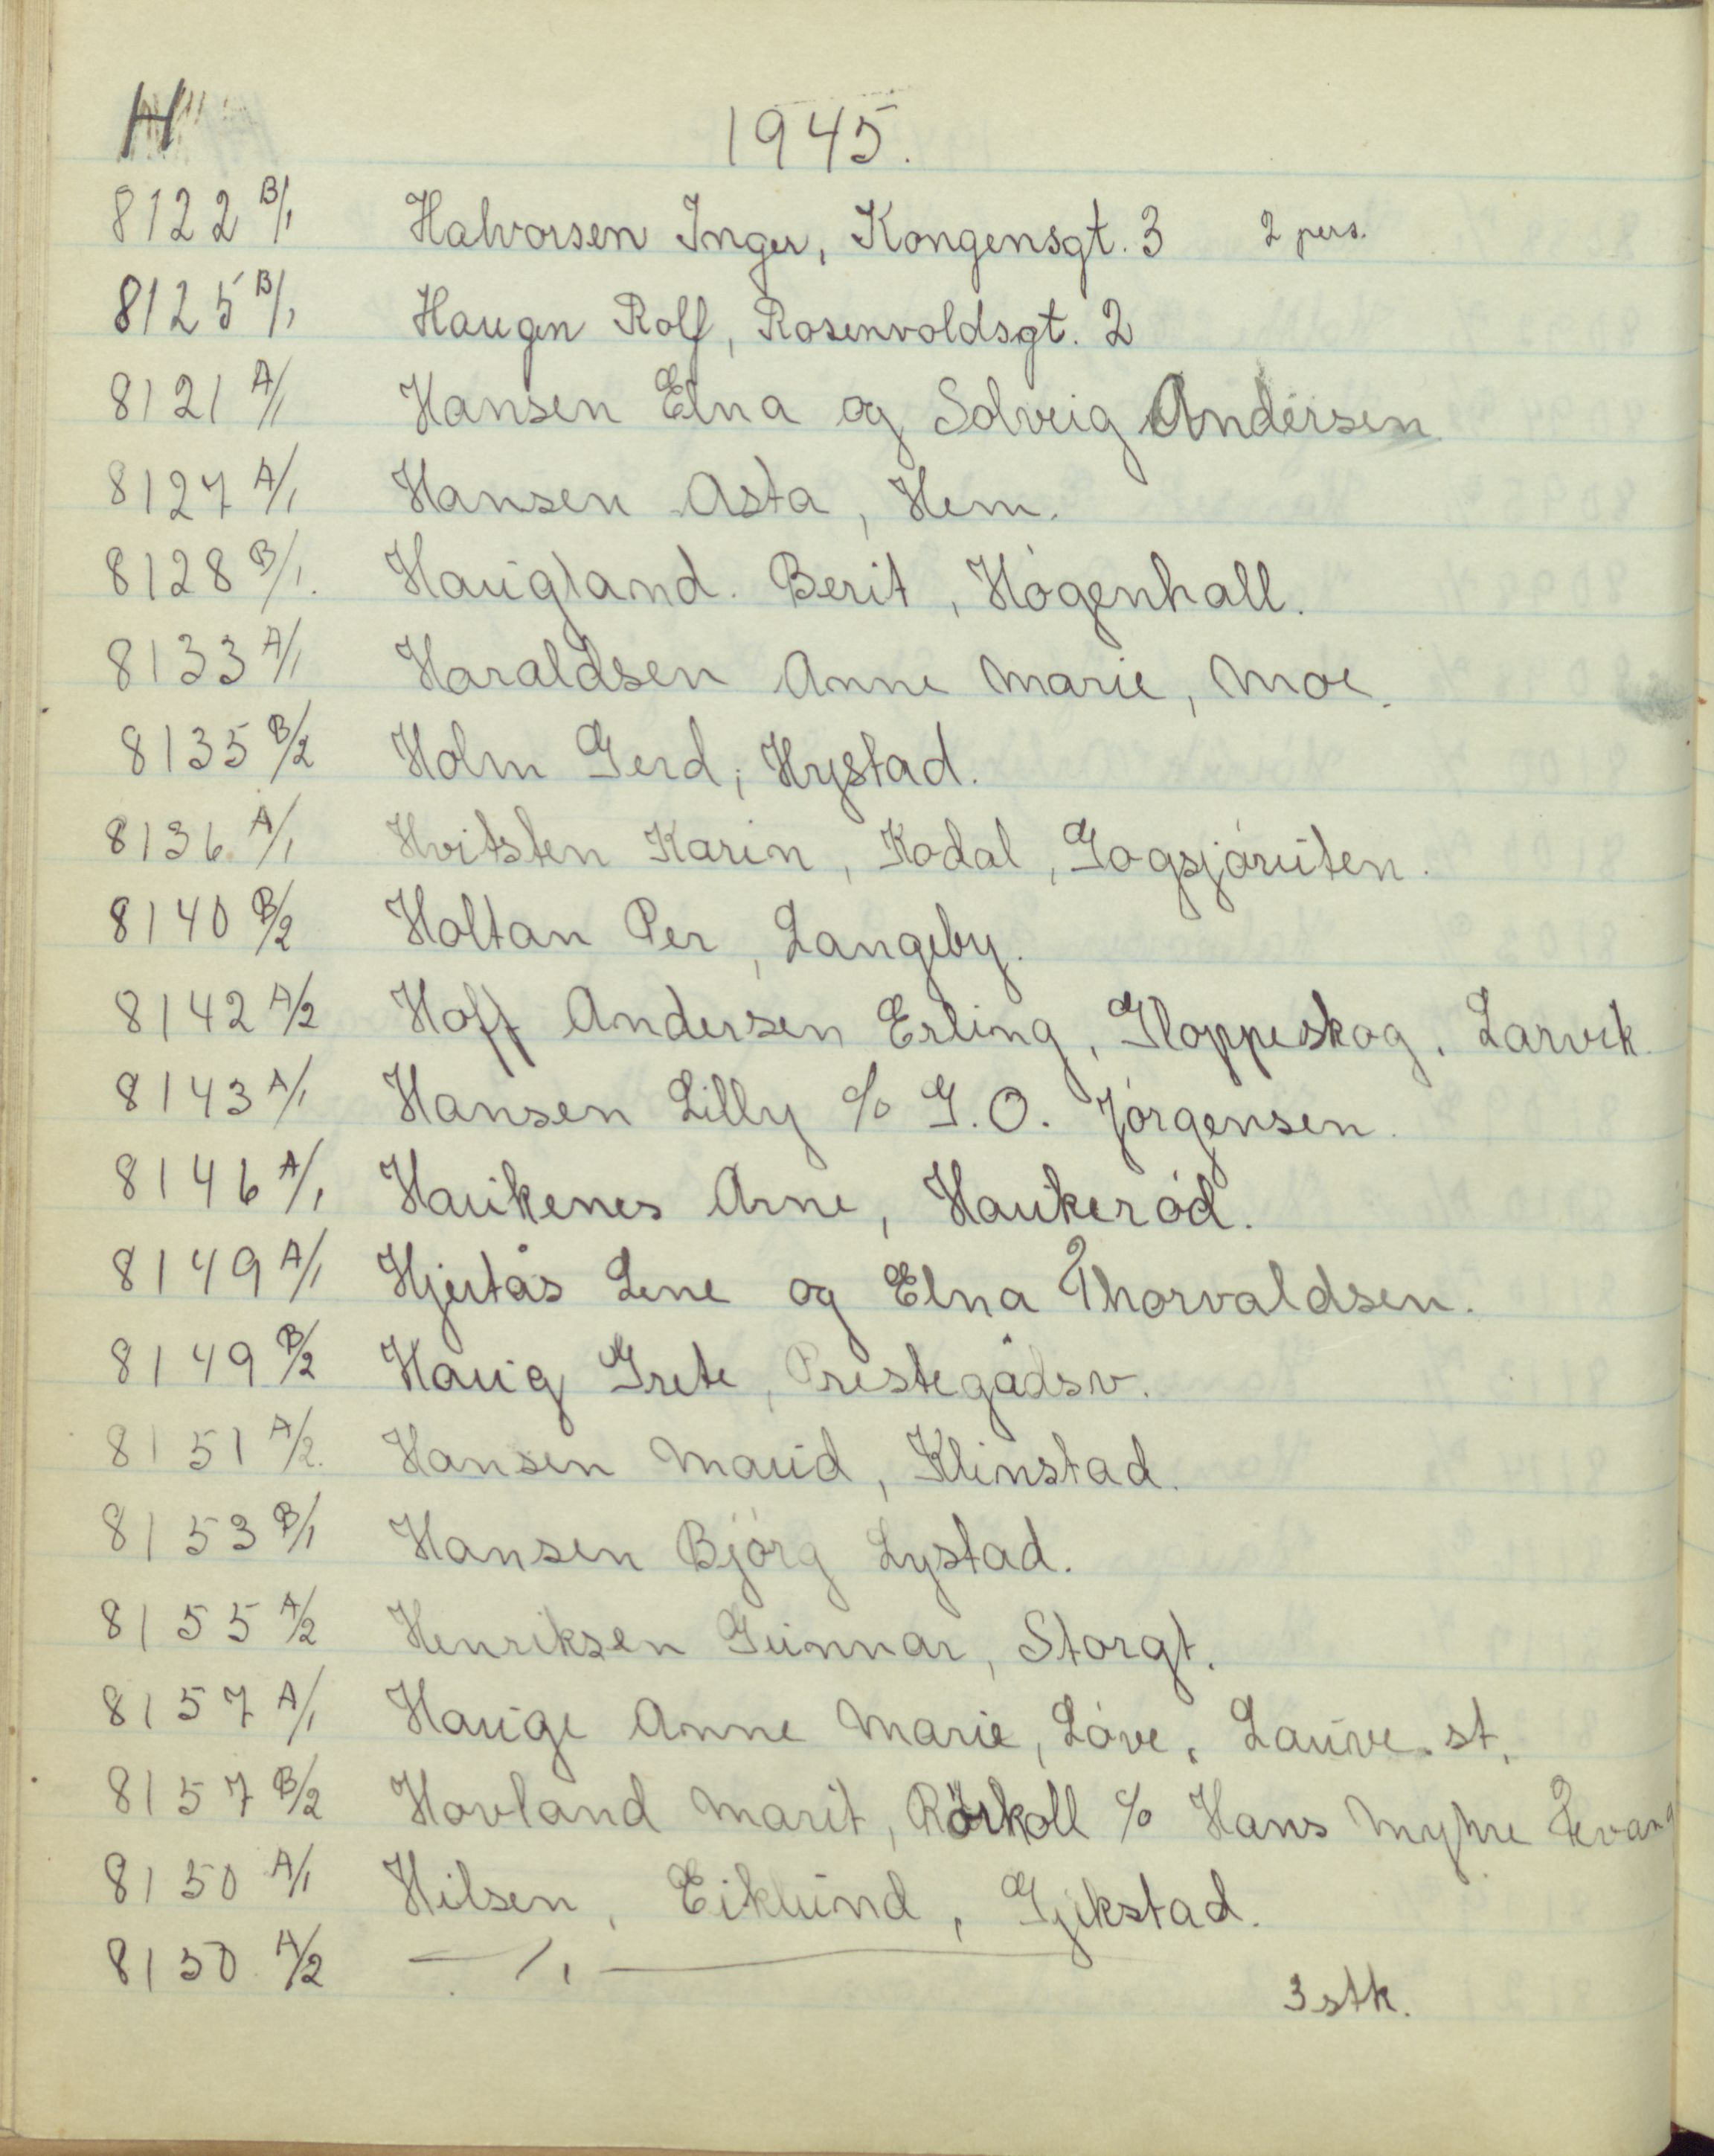 H
1945.
8122 B/1 Halvorsen Inger, Kongensgt. 3 2 pers.
8125 B/1 Haugen Rolf, Rosenvoldsgt. 2
8121 A/1 Hansen Elna og Solveig Andersen
8127 A/1 Hansen Asta, Hem.
8128 B/1. Haugland. Berit, Högenhall.
8133 A/1 Haraldsen Anne Marie, Moe.
8135 B/2 Holm Gerd, Hystad.
8136 A/1 Hvitsten Karin, Kodal, Gogsjöruten.
8140 B/2 Holtan Per, Langeby.
8142 A/2 Hoff Andersen Erling, Gloppeskog, Larvik
8143 A/1 Hansen Lilly c/o G.O. Jörgensen.
8146 A/1 Haukenes Arne, Haukeröd.
8149 A/1 Hjertås Lene og Elna Thorvaldsen.
8149 B/2 Haug Grete, Prestegådsv.
8151 A/2. Hansen Maud, Klinstad.
8153 B/1 Hansen Björg Lystad.
8155 A/2 Henriksen Gunnar, Storgt.
8157 A/1 Hauge Anne Marie, Löve, Lauve. st.
8157 B/2 Hovland Marit, Rörkoll c/o Hans Myhre Fevang
8150 A/1 Hilsen, Eiklund, Gjekstad.
8150 A/2 — " —
3 stk.